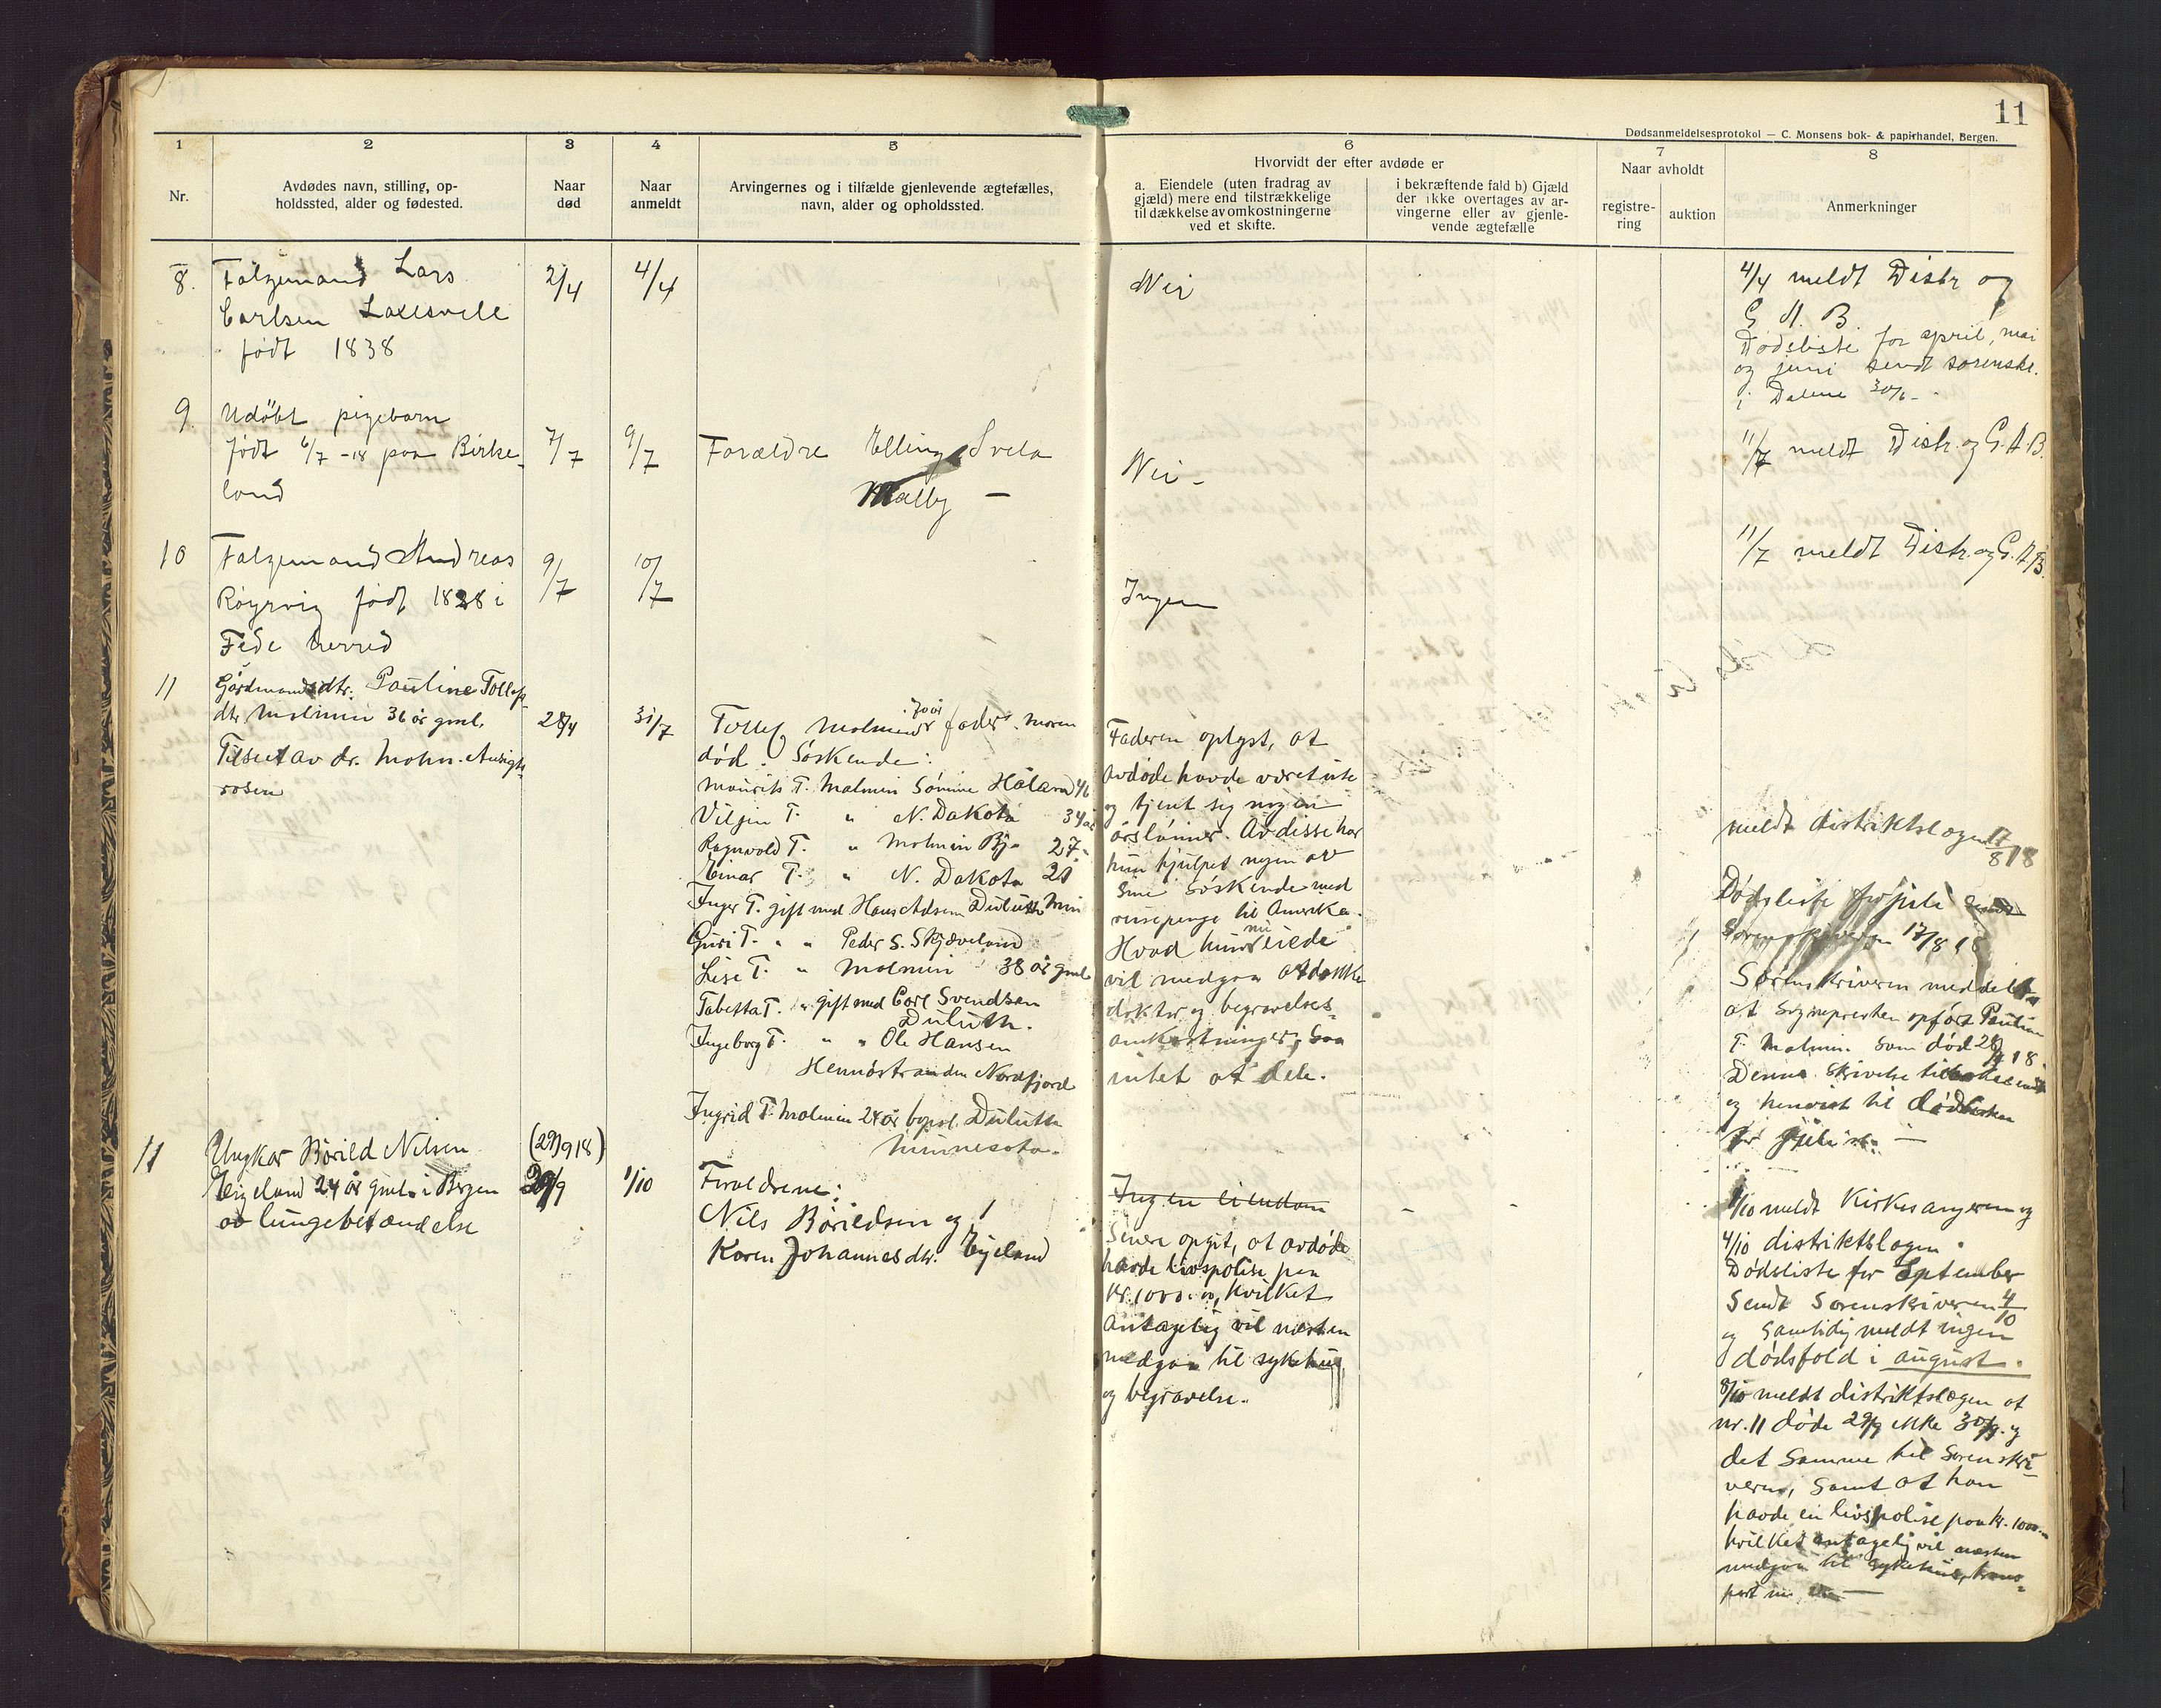 11
Dødsanmeldelsesprotokol — C. Monsens bok- & papirhandel, Bergen.
1
Nr.
2
Avdødes navn, stilling, op-
holdssted, alder og fødested.
3
Naar
død
4
Naar
anmeldt
5
Arvingernes og i tilfælde gjenlevende ægtefælles,
navn, alder og opholdssted.
6
Hvorvidt der efter avdøde er
a. Eiendele (uten fradrag av
gjæld) mere end tilstrækkelige
til dækkelse av omkostningerne
ved et skifte.
i bekræftende fald b) Gjæld
der ikke overtages av ar-
vingerne eller av gjenle-
vende ægtefælle
7
Naar avholdt
registre-
ring
auktion
8
Anmerkninger
8.
Folgemand Lars
Carlsen
født 1838
2/4
4/4
Nei
4/4 meldt Distr og
G. A. B.
Dødsliste for april, mai
og juni sendt sorenskr.
i Dalene 30/6 -
9.
Udøbt pigebarn
født 6/7 -18 paa Birke-
land
7/7
9/7
Forældre Elling Svela
Malby —
Nei -
11/7 meldt Distr. og G. A. B.
10
Folgemand Andreas
Røyrvig født 1838 i
Fede herred
9/7
10/7
Ingen
11/7 meldt Distr. og G. A. B.
11
Gårdmandsdtr. Pauline Tollefs-
dtr Malmin 36 år gml.
Tilset av dr. Mohn. Ansigts-
rosen
28/7
31/7
Tollef Malmin 70 år fader. Moren
død. Søskende:
Maurits T. Malmin Sømme Håland 46
Viljen T. " N. Dakota 34 år
Ragnvold T. " Malmin Bj. 27 "
Einar T. " N. Dakota 21
Inger T. gift med Hans Adsen Duluth Min
Guri T. " " Peder S. Skjæveland
Lise T. " Malmin 38 år gml
Tabetta T. " gift med Carl Svendsen
Duluth.
Ingeborg T. " " Ole Hansen
Hennøstranden Nordfjord
Ingrid T. Malmin 24 år bopæl Duluth
Minnesota.
Faderen oplyst, at
avdøde havde været ute
og tjent sig nogen
årslønner. Av disse har
hun hjulpet nogen av
sine søskende med
reisepenge til Amerika.
Hvad hun nu eiede
vil medgaa at dække
doktor og begravelses-
omkostninger, saa
intet at dele.
meldt distriktslægen 17/8 18
Dødsliste for juli sendt
Sorenskriveren 17/8 18
Sorenskriveren meddelt
at Sognepresten opført Pauline
T. Malmin som død 28/7 18
Denne skrivelse tilbakesendt
og henvist til dødslisten
for juli m. —
11
Ungkar Børild Nilsen
Eigeland 24 år gml. i Bergen
av lungebetændelse
(29/9 18)
30/9
1/10
Foreldrene:
Nils Børildsen og
Karen Johannesdtr. Eigeland
Ingen eiendom
Senere opgit, at avdøde
havde livspolise paa
kr. 1000.00, hvilket
antagelig vil næsten
medgaa til sykehus
og begravelse.
1/10 meldt Kirkesangeren og
4/10 distriktslægen.
Dødsliste for September
Sendt Sorenskriveren 4/10
og samtidig meldt ingen
dødsfald i august.
8/10 meldt distriktslægen at
nr. 11 døde 29/9 ikke 30/9. og
det samme til Sorenskri-
veren, samt at han
havde en livspolise paa kr. 1000.-
hvilket antagelig vil næsten
medgaa til sykehus, trans-
port m. v. —